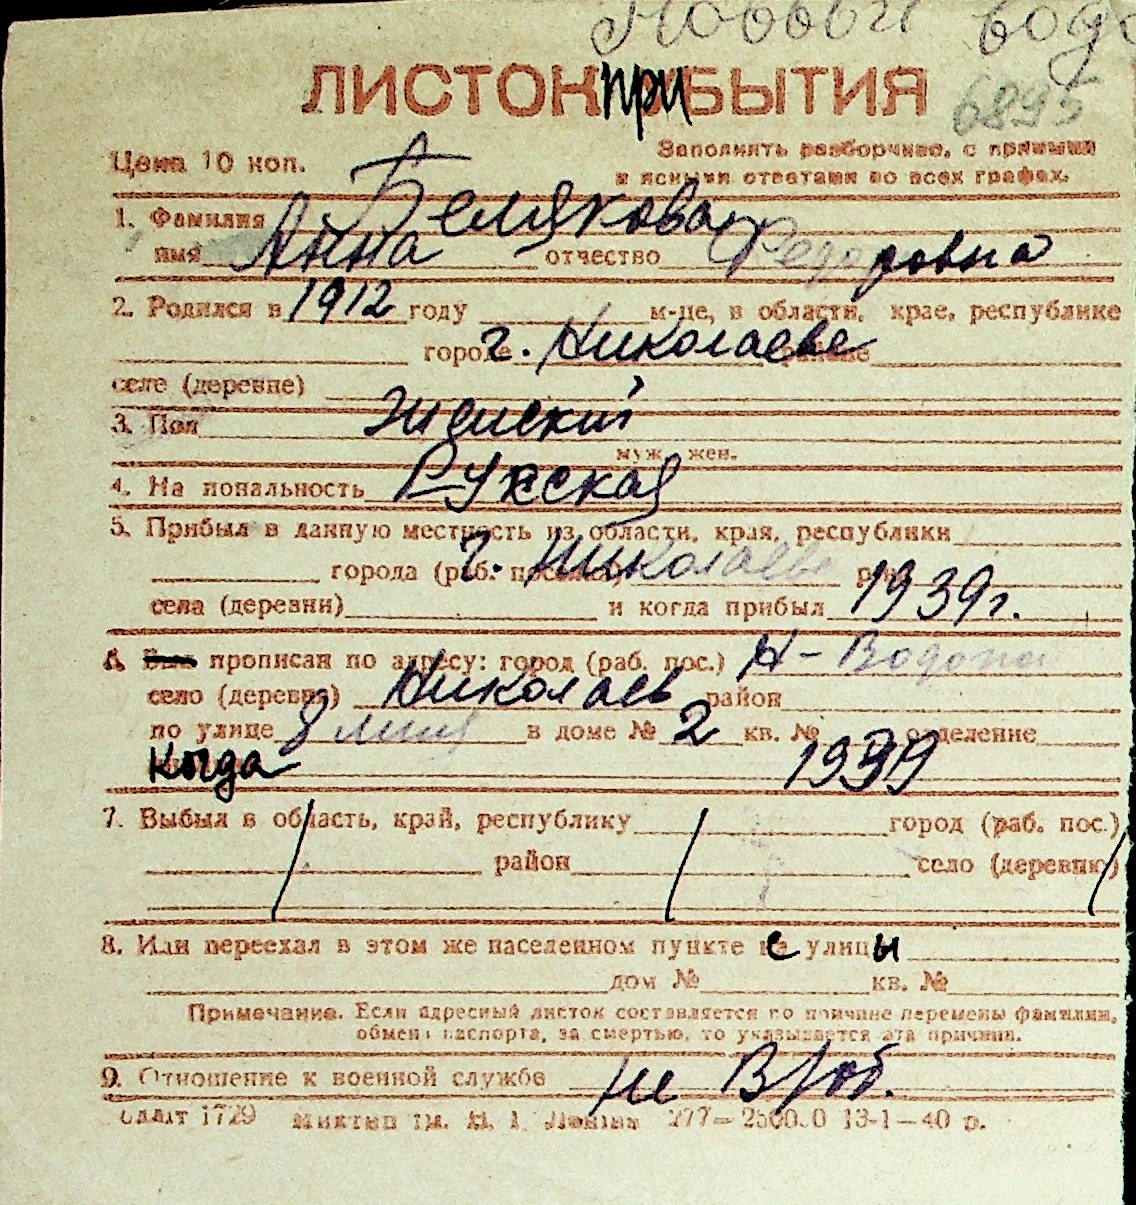 Новый водо
ЛИСТОК ПРИБЫТИЯ
6895
Цена 10 коп.
Заполнять разборчиво, с прямыми
и ясными ответами во всех графах.
1. Фамилия Белякова
имя Анна отчество Федоровна
2. Родился в 1912 году м-це, в области, крае, республике
городе г. Николаеве районе
селе (деревне)
3. Пол Женский
муж. жен.
4. Национальность Русская
5. Прибыл в данную местность из области, края, республики
города (раб. поселка) г. Николаева
села (деревни) и когда прибыл 1939 г.
6. Был прописан по адресу: город (раб. пос.) Н-Водопо
село (деревня) Николаев район
по улице 8 линия в доме № 2 кв. № отделение
когда 1939
7. Выбыл в область, край, республику город (раб. пос.)
район село (деревню)
8. Или переехал в этом же населенном пункте с улицы
дом № кв. №
Примечание. Если адресный листок составляется по причине перемены фамилии,
обмена паспорта, за смертью, то указывается эта причина.
9. Отношение к военной службе не В/об.
1729 им. Ленина 277— 13-1—40 р.